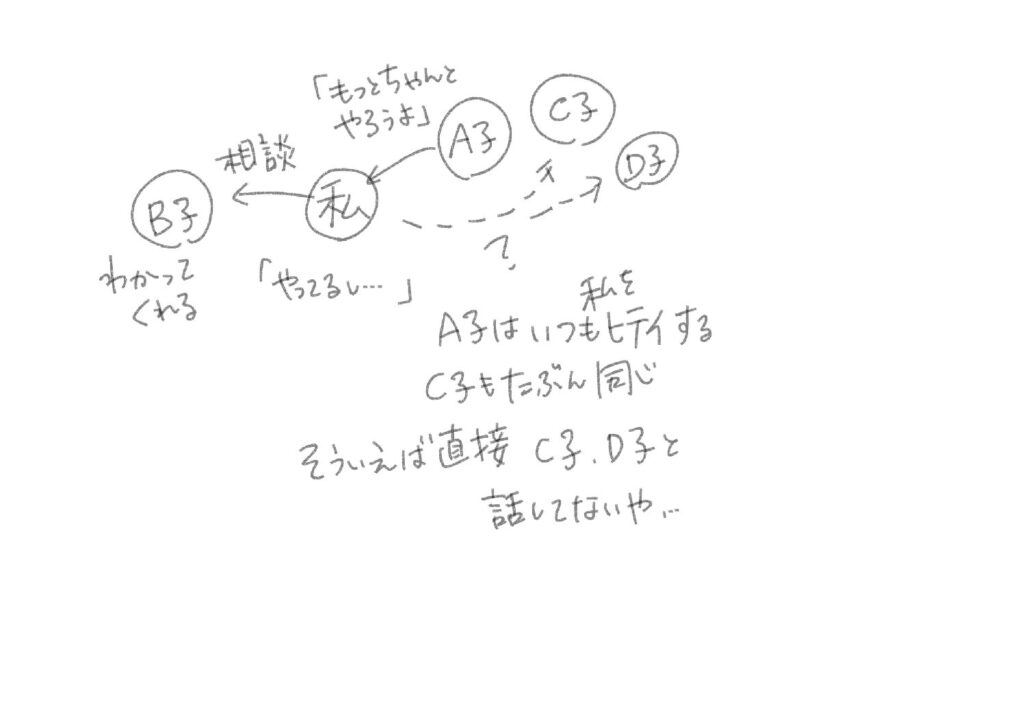 「もっとちゃんと
やろうよ」
A子
C子
D子
相談
B子
私
?
わかって
くれる
「やってるし…」
私を
A子はいつもヒテイする
C子もたぶん同じ
そういえば直接 C子、D子と
話してないや…